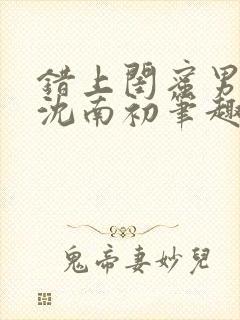 错上闺蜜男
沈南初笔趣
鬼帝妻妙兒